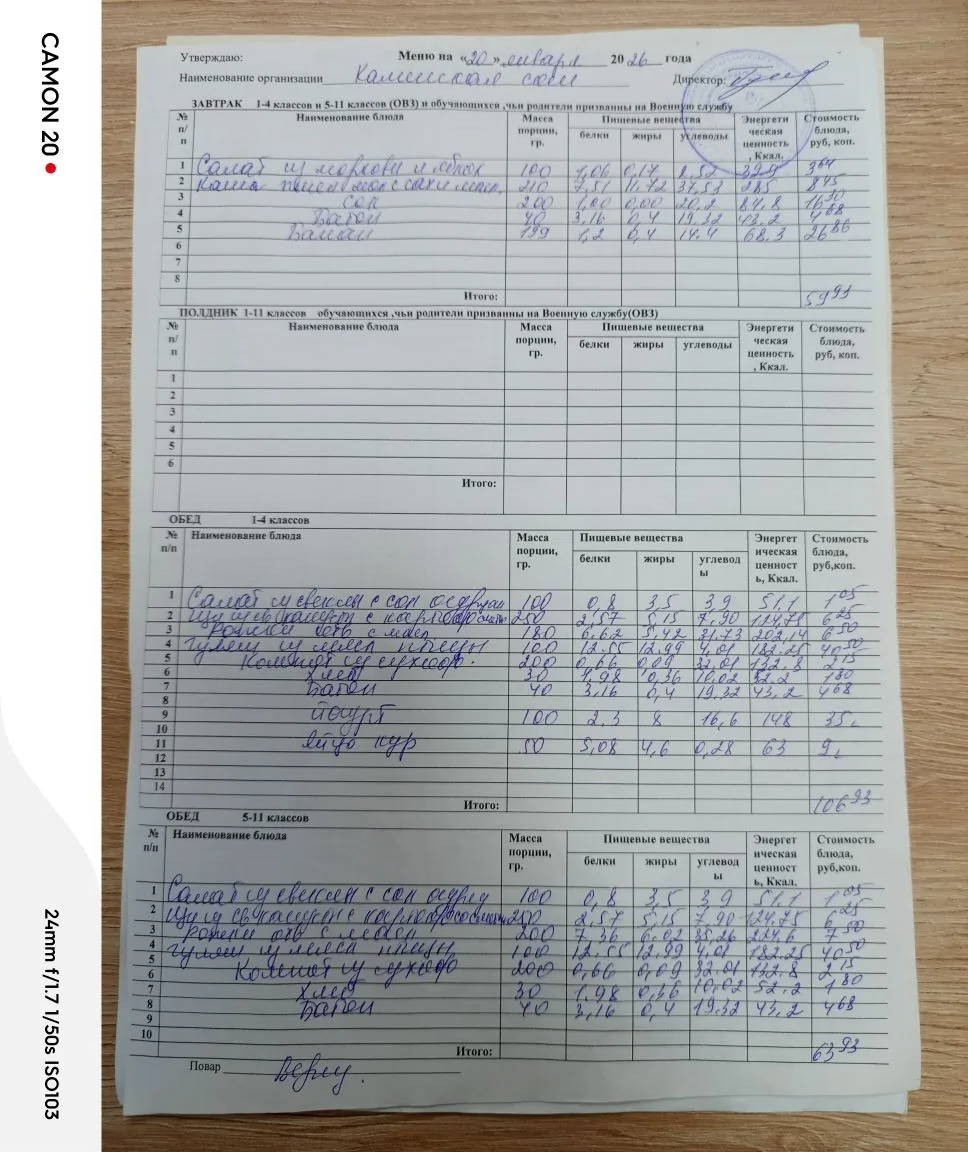 CAMON 20
24mm f/1.7 1/50s ISO103
Утверждаю: Меню на «20» января 2026 года
Наименование организации Каменская сош Директор:
ЗАВТРАК 1-4 классов и 5-11 классов (ОВЗ) и обучающихся ,чьи родители призванны на Военную службу
№ п/п Наименование блюда Масса порции, гр. Пищевые вещества белки жиры углеводы Энергети ческая ценность , Ккал. Стоимость блюда, руб, коп.
1 Салат из моркови и яблок 100 1,06 0,17 8,52 39,9 3 64
2 Каша пшен мол с сах и масл, 210 7,51 11,72 37,53 285 8 45
3 сок 200 1,00 0,00 20,2 84,8 16 30
4 Батон 40 3,16 0,4 19,32 43,2 4 68
5 Банан 199 1,2 0,4 14.4 68.3 26 86
6
7
8
Итого: 59 93
ПОЛДНИК 1-11 классов обучающихся ,чьи родители призванны на Военную службу(ОВЗ)
№ п/п Наименование блюда Масса порции, гр. Пищевые вещества белки жиры углеводы Энергети ческая ценность , Ккал. Стоимость блюда, руб, коп.
1
2
3
4
5
6
Итого:
ОБЕД 1-4 классов
№ п/п Наименование блюда Масса порции, гр. Пищевые вещества белки жиры углевод ы Энергет ическая ценност ь, Ккал. Стоимость блюда, руб,коп.
1 Салат из свеклы с сол огурцам 100 0,8 3,5 3,9 51,1 1 05
2 Щи из св капусты с картоф со сметан 250 2,57 5,15 7,90 124,75 6 25
3 Рожки отв с масл 180 6,62 5,42 31,73 202,14 6 50
4 Гуляш из мяса птицы 100 12.55 12,99 4,01 182.25 40 50
5 Компот из сухофр. 200 0,66 0,09 32,01 132,8 2 15
6 Хлеб 30 1,98 0,36 10,02 52.2 1 80
7 Батон 40 3,16 0,4 19,32 43,2 4 68
8
9 йогурт 100 2.3 8 16,6 148 35
10
11 яйцо кур 50 5,08 4,6 0,28 63 9
12
13
14
Итого: 106 93
ОБЕД 5-11 классов
№ п/п Наименование блюда Масса порции, гр. Пищевые вещества белки жиры углевод ы Энергет ическая ценност ь, Ккал. Стоимость блюда, руб,коп.
1 Салат из свеклы с сол огурц 100 0,8 3,5 3,9 51,1 1 05
2 Щи из св капусты с картоф со сметан 250 2,57 5,15 7,90 124,75 6 25
3 Рожки отв с маслом 200 7,36 6,02 35,26 224,6 7 50
4 Гуляш из мяса птицы 100 12.55 12,99 4,01 182.25 40 50
5
6 Компот из сухофр 200 0,66 0,09 32,01 132,8 2 15
7 Хлеб 30 1,98 0,36 10,02 52.2 1 80
8 Батон 40 3,16 0,4 19,32 43,2 4 68
9
10
Итого: 63 93
Повар